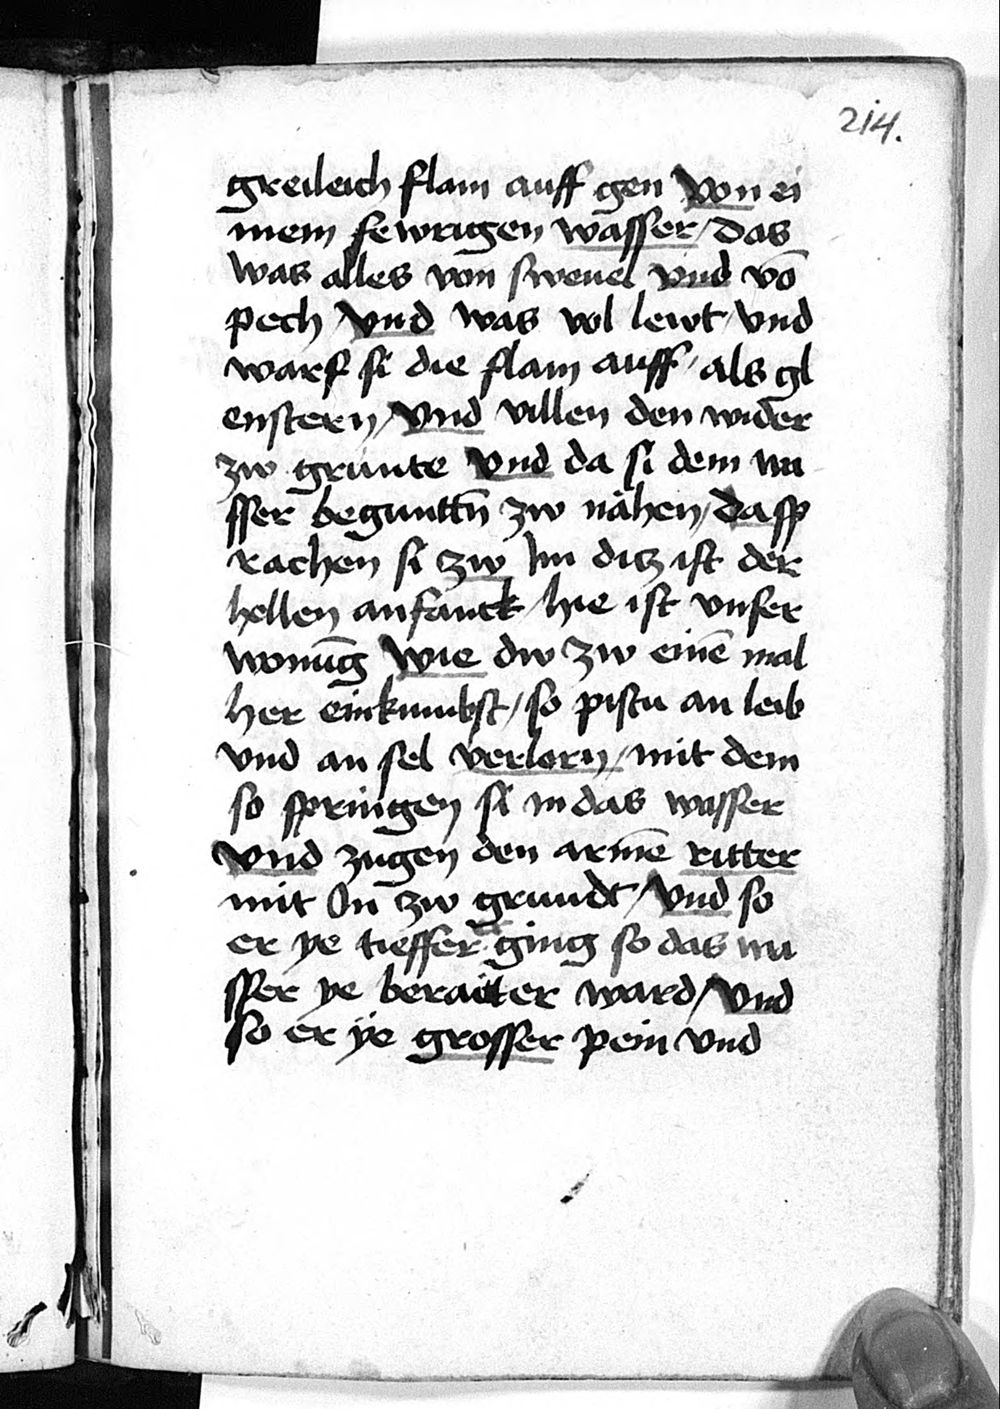 214.
greileich flam auff gen von ei
nem fewrigen wasser / das
was alles von swevel vnd vō
pech / vnd was vol lewt / vnd
warf si die flam auff / als gl
enstern / vnd villen den wider
zw grunte vnd da si dem wa
sser beguntn̄ zw nähen / da sp
rachen si zw Im ditz ist der
hellen anfanck / hie ist vnser
wonūg wie dw zw einē mal
her einkumbst / so pistu an leib
vnd an sel verlorn / mit dem
so springen si in das wasser
vnd zugen den armē ritter
mit In zw grundt / vnd so
er ye tieffer ging so das wa
sser ye beraitter ward / vnd
so er ÿe grosser pein vnd